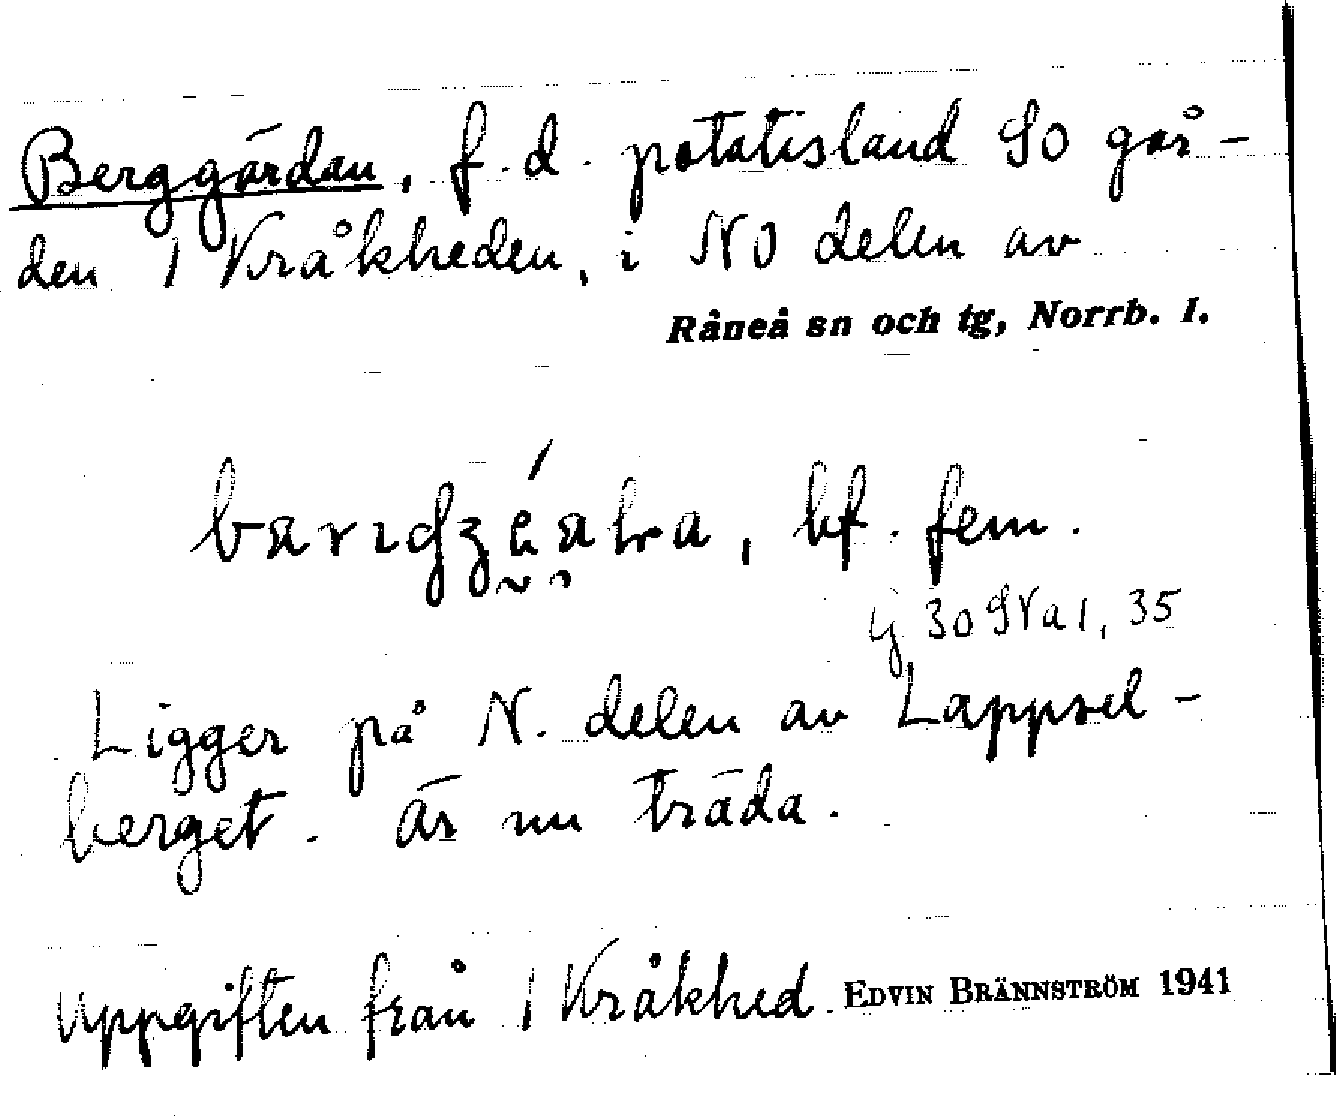 Berggärdan, f.d. potatisland SO går-
den 1 Kråkheden, i NO delen av
Råneå sn och tg, Norrb. l.
bf. fem.
30 SV a 1, 35
Ligger på N. delen av Lappsel-
berget. Är nu träda.
Uppgiften från 1 Kråkhed EDVIN BRÄNNSTRÖM 1941